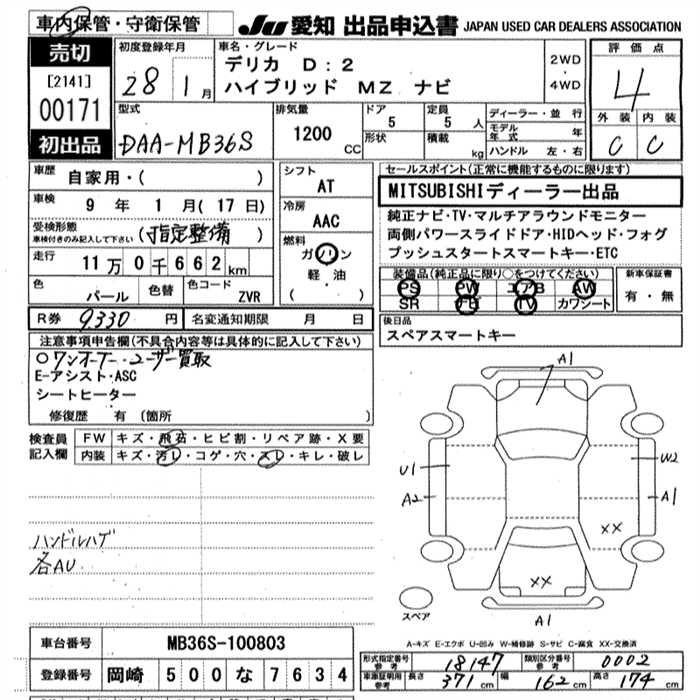 車内保管・守衛保管
JU 愛知 出品申込書 JAPAN USED CAR DEALERS ASSOCIATION
売切
[2141]
00171
初出品
初度登録年月
28 1月
車名・グレード
デリカ D:2
ハイブリッド MZ ナビ
2WD
・
4WD
評価点
4
外装 内装
C C
型式
DAA-MB36S
排気量
1200 CC
ドア
5
形状
定員
5 人
積載
kg
ディーラー・並行
モデル年式 年
ハンドル 左・右
車歴
自家用・( )
車検
9 年 1 月(17 日)
受検形態
車検付きのみ記入して下さい
(指定整備)
走行
11万0千662km
色
パール
色替
色コード
ZVR
シフト
AT
冷房
AAC
燃料
ガソリン
軽油
( )
セールスポイント(正常に機能するものに限ります)
MITSUBISHIディーラー出品
純正ナビ・TV・マルチアラウンドモニター
両側パワースライドドア・HIDヘッド・フォグ
プッシュスタートスマートキー・ETC
装備品(純正品に限り○をつけてください)
PS PW エアB AW
SR ナビ TV カワシート
新車保証書
有・無
R券 9330 円
名変通知期限 月 日
後日品
スペアスマートキー
注意事項申告欄(不具合内容等は具体的に記入して下さい)
○ワンオーナー・ユーザー買取
E-アシスト・ASC
シートヒーター
修復歴 有(箇所 )
検査員
記入欄
FW キズ・飛石・ヒビ割・リペア跡・X要
内装 キズ・汚レ・コゲ・穴・スレ・キレ・破レ
ハンドルハゲ
各AU
A1
U1
A2
W2
A1
XX
XX
A1
スペア
A-キズ E-エクボ U-凹み W-補修跡 S-サビ C-腐食 XX-交換済
車台番号
MB36S-100803
登録番号
岡崎 500 な 7634
形式指定番号
参考
18147
類別区分番号
参考
0002
車庫証明用
参考
長さ 371cm 幅 162cm 高さ 174cm